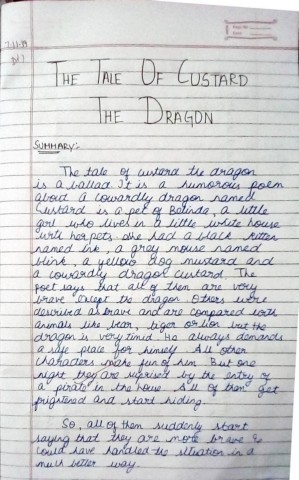 7-11-19
THE TALE OF CUSTARD
THE DRAGON
SUMMARY:-
The tale of custard the dragon
is a ballad. It is a humorous poem
about a cowardly dragon named
Custard is a pet of Belinda, a little
girl who lives in a little white house
with her pets. She had a black kitten
named ink, a gray mouse named
blink, a yellow dog mustard and
a cowardly dragon custard. The
poet says that all of them are very
brave except the dragon. Others were
described as brave and are compared with
animals like bear, tiger or lion but the
dragon is very timid. He always demands
a safe place for himself. All other
characters make fun of him. But one
night they are suprised by the entry of
a pirate in the house. All of them get
frightened and start hiding.
So, all of them suddenly start
saying that they are more brave &
could have handled the situation in a
much better way.